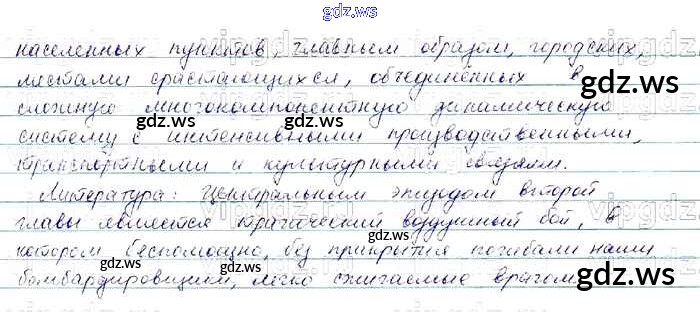 gdz.ws
населенных пунктов, главным образом, городских,
местами срастающихся, объединённых в
сложную многокомпонентную динамическую
систему с интенсивными производственными,
транспортными и культурными связями.
Литература: Центральным эпизодом второй
главы является трагический воздушный бой, в
котором беспомощно, без прикрытия погибали наши
бомбардировщики, легко сжигаемые врагом
gdz.ws
gdz.ws
gdz.ws
gdz.ws